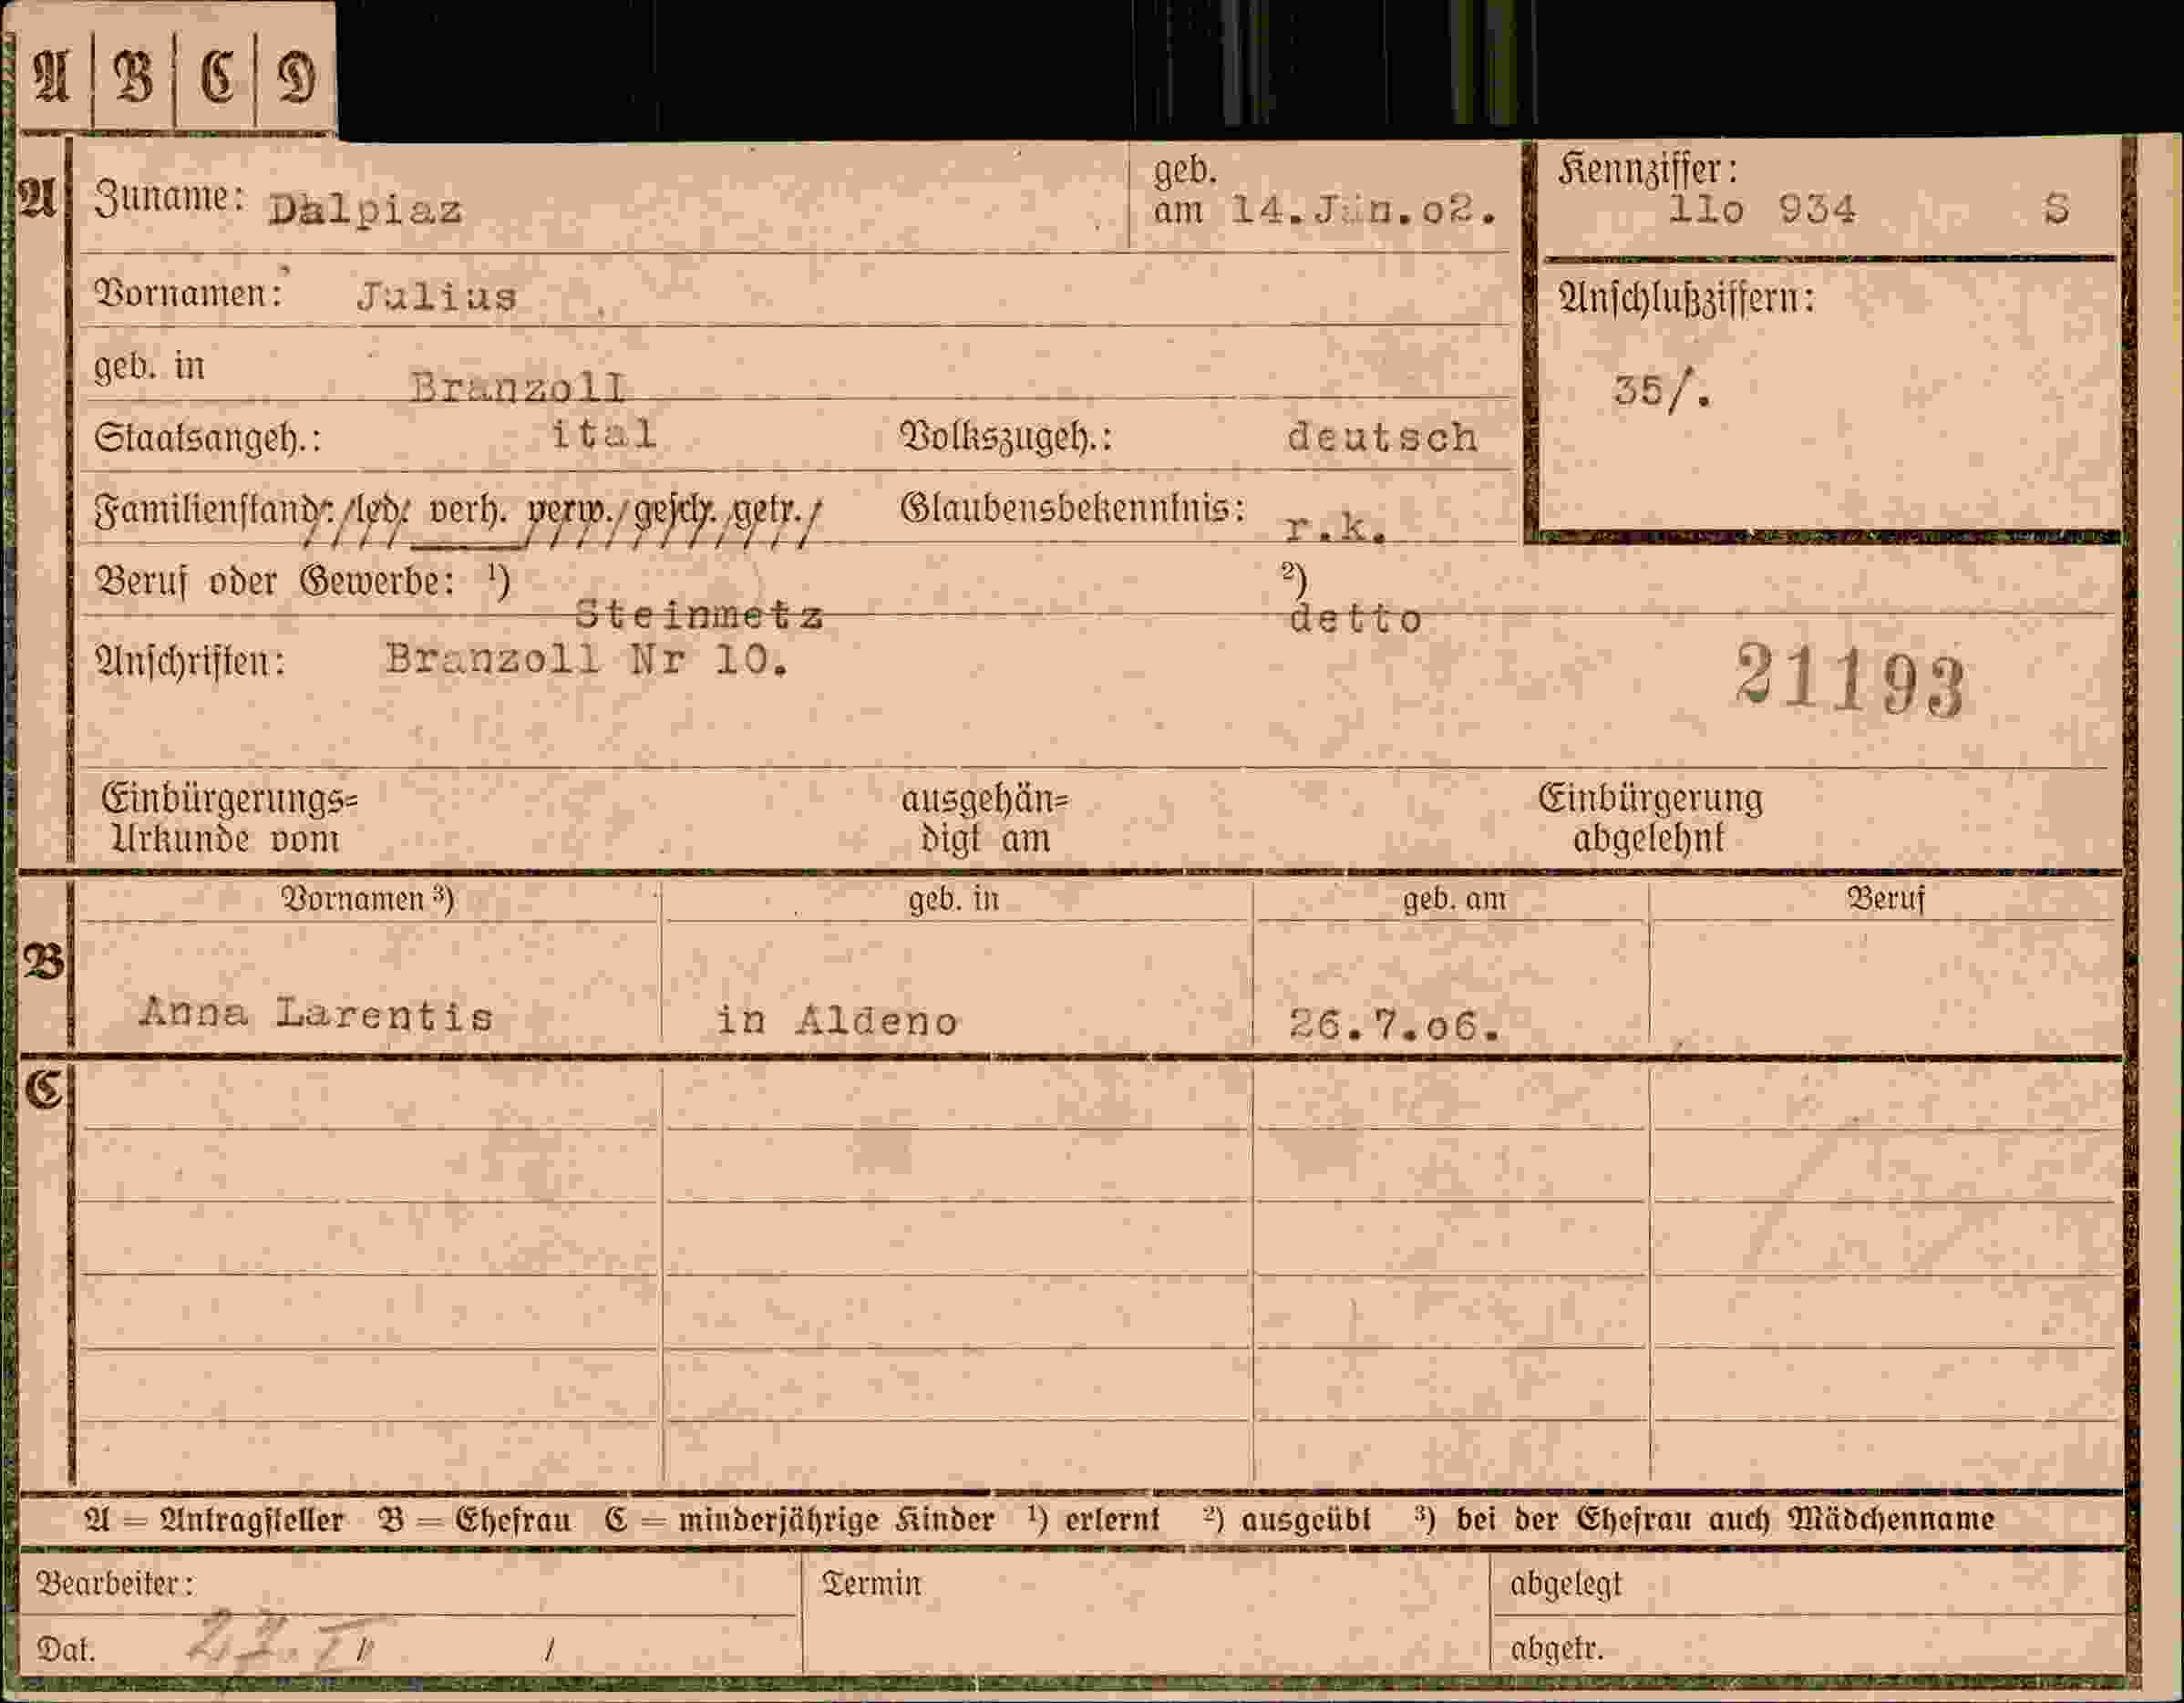 A B C D
A Zuname: Dalpiaz geb. am 14. .02. Kennziffer: 11o 934 S
Vornamen: Julius Anschlußziffern:
geb. in Branzoll 35/.
Staatsangeh.: ital Volkszugeh.: deutsch
Familienstand: led. verh. verw. gesch. getr. Glaubensbekenntnis: r.k.
Beruf oder Gewerbe: ¹) Steinmetz ²) detto
Anschriften: Branzoll Nr 10. 21193
Einbürgerungs= ausgehän= Einbürgerung
Urkunde vom digt am abgelehnt
Vornamen ³) geb. in geb. am Beruf
B Anna Larentis in Aldeno 26.7.o6.
C
A = Antragsteller B = Ehefrau C = minderjährige Kinder ¹) erlernt ²) ausgeübt ³) bei der Ehefrau auch Mädchenname
Bearbeiter: Termin abgelegt
Dat. abgetr.